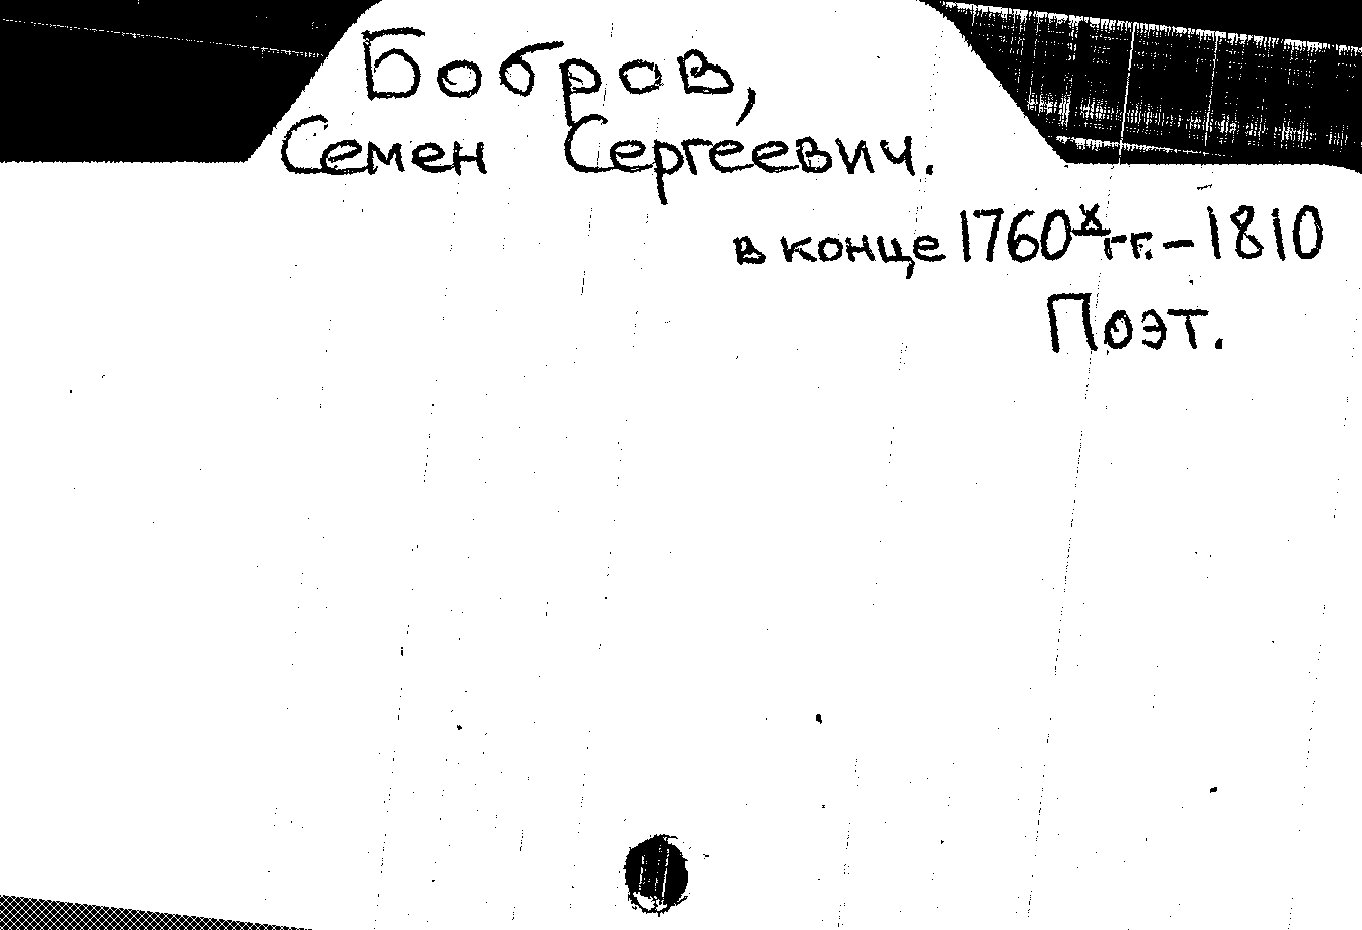 Бобров,
Семен Сергеевич.
в конце 1760х гг. – 1810
Поэт.